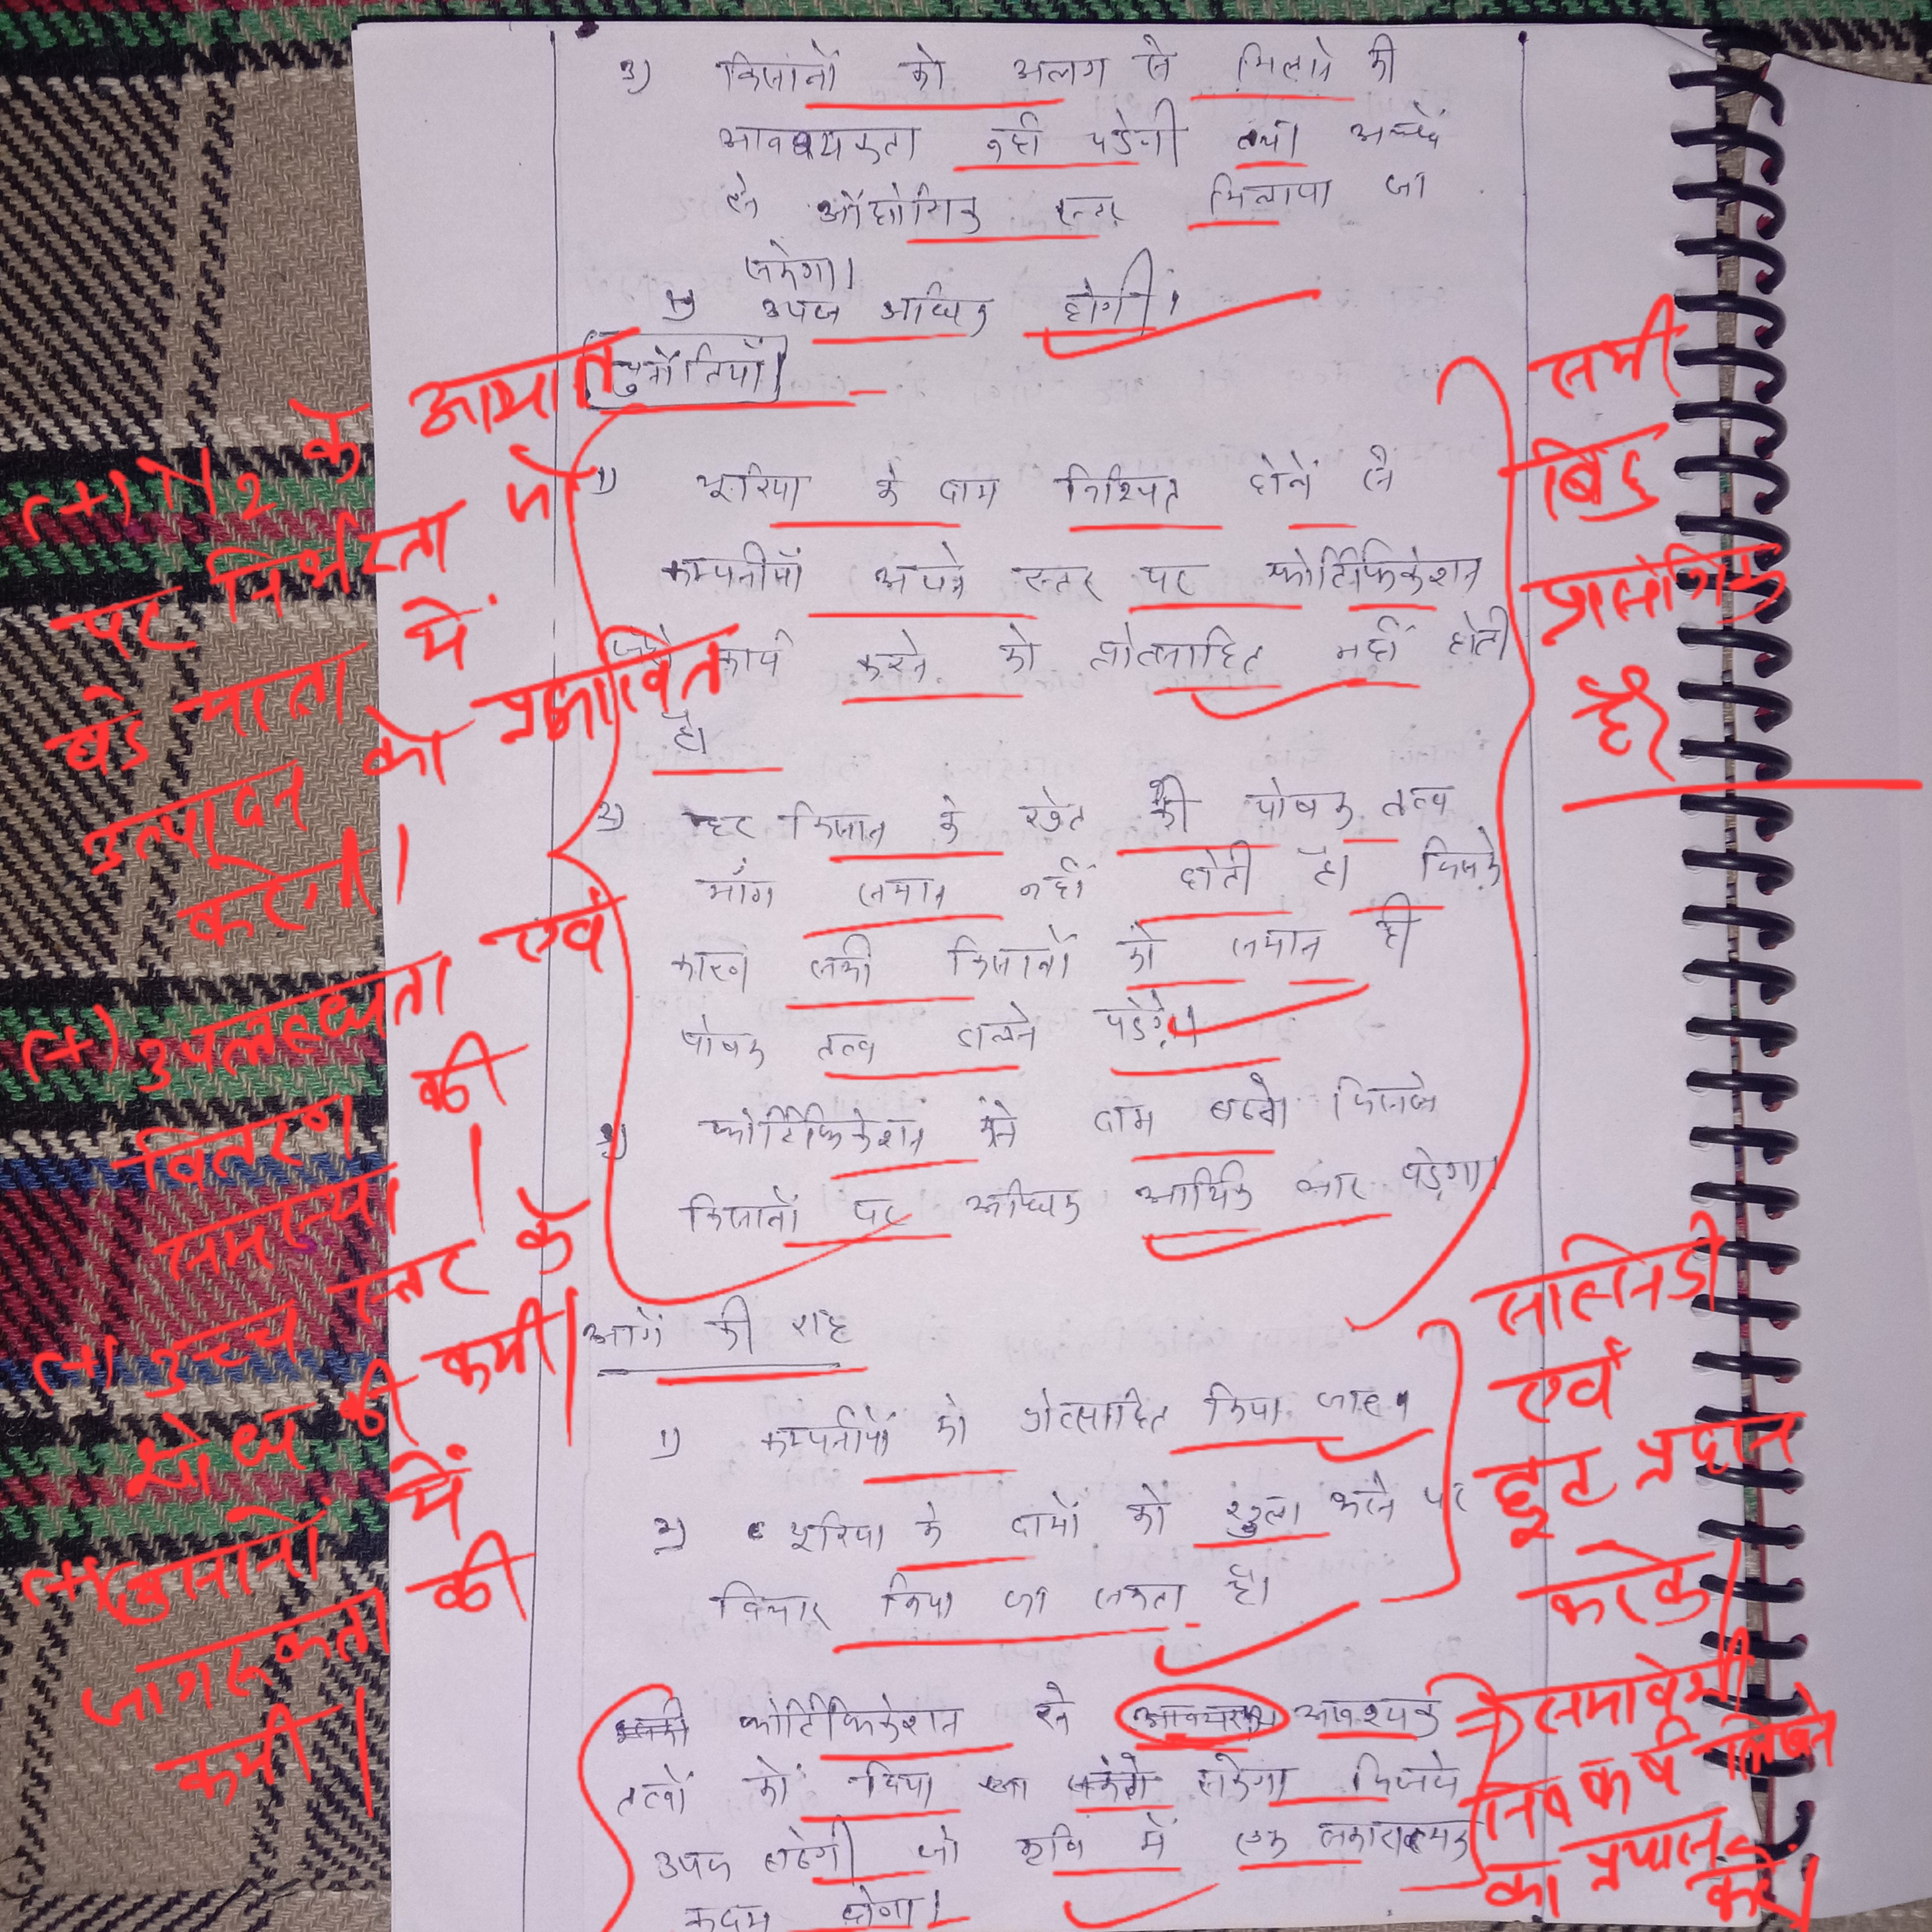 3) किसानों को अलग से मिलाने की
आवश्यकता नहीं पडेगी तथा अच्छे
से औद्योगिक स्तर मिलाया जा
सकेगा।
4) उपज अधिक होगी।
चुनौतियाँ
1) यूरिया के दाम निश्चित होने से
कम्पनीयाँ अपने स्तर पर फोर्टिफिकेशन
जैसे कार्य करने को प्रोत्साहित नहीं होती
है।
2) हर किसान के खेत की पोषक तत्व
माँग समान नहीं होती है। जिसके
कारण सभी किसानों को समान ही
पोषक तत्व डालने पडेगे।
3) फोर्टिफिकेशन से दाम बढेगे जिससे
किसानों पर अधिक आर्थिक भार पडेगा।
आगे की राह
1) कम्पनीयों को प्रोत्साहित किया जाए।
2) यूरिया के दामों को खुला करने पर
विचार किया जा सकता है।
फोर्टिफिकेशन से आवश्यक
तत्वों को दिया जा सकेगा जिससे
उपज बढेगी जो कृषि में एक सकारात्मक
कदम होगा।
(+) के आयात
पर निर्भरता जो
बडे मात्रा में
उत्पादन को प्रभावित
करेगी।
(+) उपलब्धता एवं
वितरण की
समस्या।
(+) उच्च स्तर के
शोध की कमी।
(+) किसानों में
जागरूकता की
कमी।
सभी
बिंदु
प्रासंगिक
है।
सब्सिडी
एवं
छूट प्रदान
करके।
समावेशी
निष्कर्ष लिखने
का प्रयास
करें।